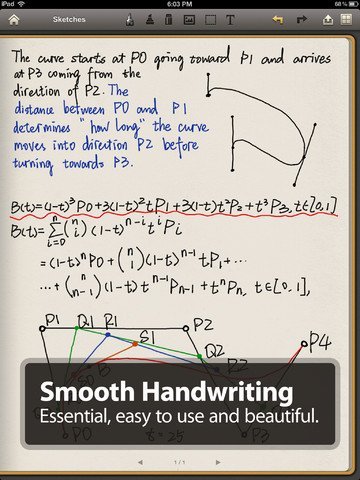 iPod 6:03 PM 68%
Sketches T
The curve starts at P0 going toward P1 and arrives
at P3 coming from the
direction of P2. The
distance between P0 and P1
determines "how long" the curve
moves into direction P2 before
turning towards P3.
B(t)=(1-t)³P0+3(1-t)²tP₁+3(1-t)t²P₂+t³P₃,t∈[0,1]
B(t)=∑ⁿᵢ₌₀(ⁿᵢ)(1-t)ⁿ⁻ⁱtⁱPᵢ
=(1-t)ⁿP0+(ⁿ₁)(1-t)ⁿ⁻¹tP₁+⋯
⋯+(ⁿₙ₋₁)(1-t)tⁿ⁻¹Pₙ₋₁+tⁿPₙ, t∈[0,1],
P1 Q1 R1 S1 P2
Q2 P4
B R2
Smooth Handwriting
Essential, easy to use and beautiful.
P0 t=.25 P3
1/1